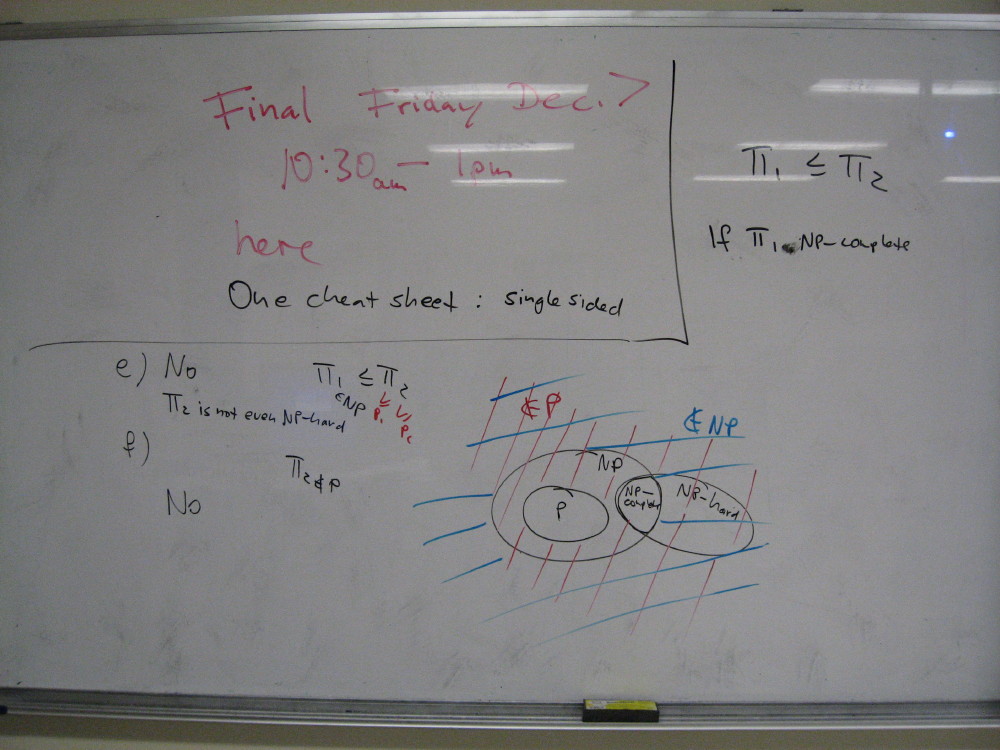 Final Friday Dec. 7
10:30am – 1pm
here
One cheat sheet : single sided
Π₁ ≤ Π₂
If Π₁ NP-complete
e) No
Π₁ ≤ Π₂
∈NP
Π₂ is not even NP-hard
f)
Π₂∉P
No
∉P
∉NP
NP
P
NP-complete
NP-hard